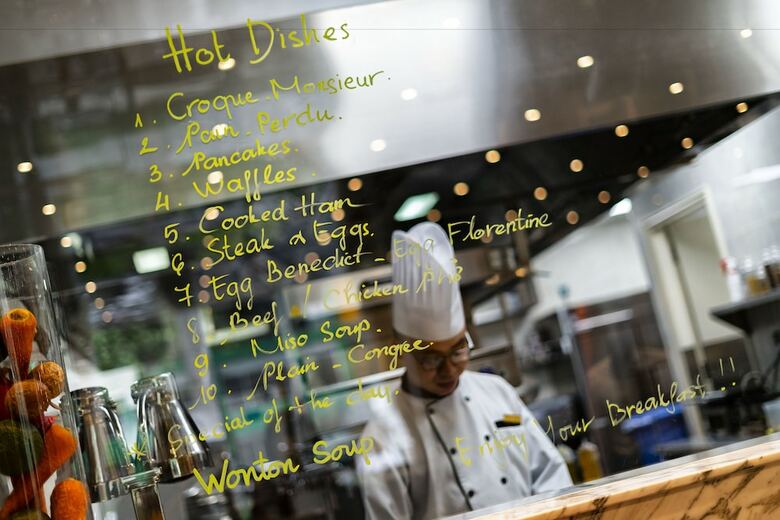 Hot Dishes
1. Croque Monsieur.
2. Pain Perdu.
3. Pancakes.
4. Waffles.
5. Cooked Ham
6. Steak & Eggs.
7. Egg Benedict - Egg Florentine
8. Beef / Chicken Phở
9. Miso Soup.
10. Plain - Congee.
* Special of the day.
Wonton Soup
Enjoy Your Breakfast !!